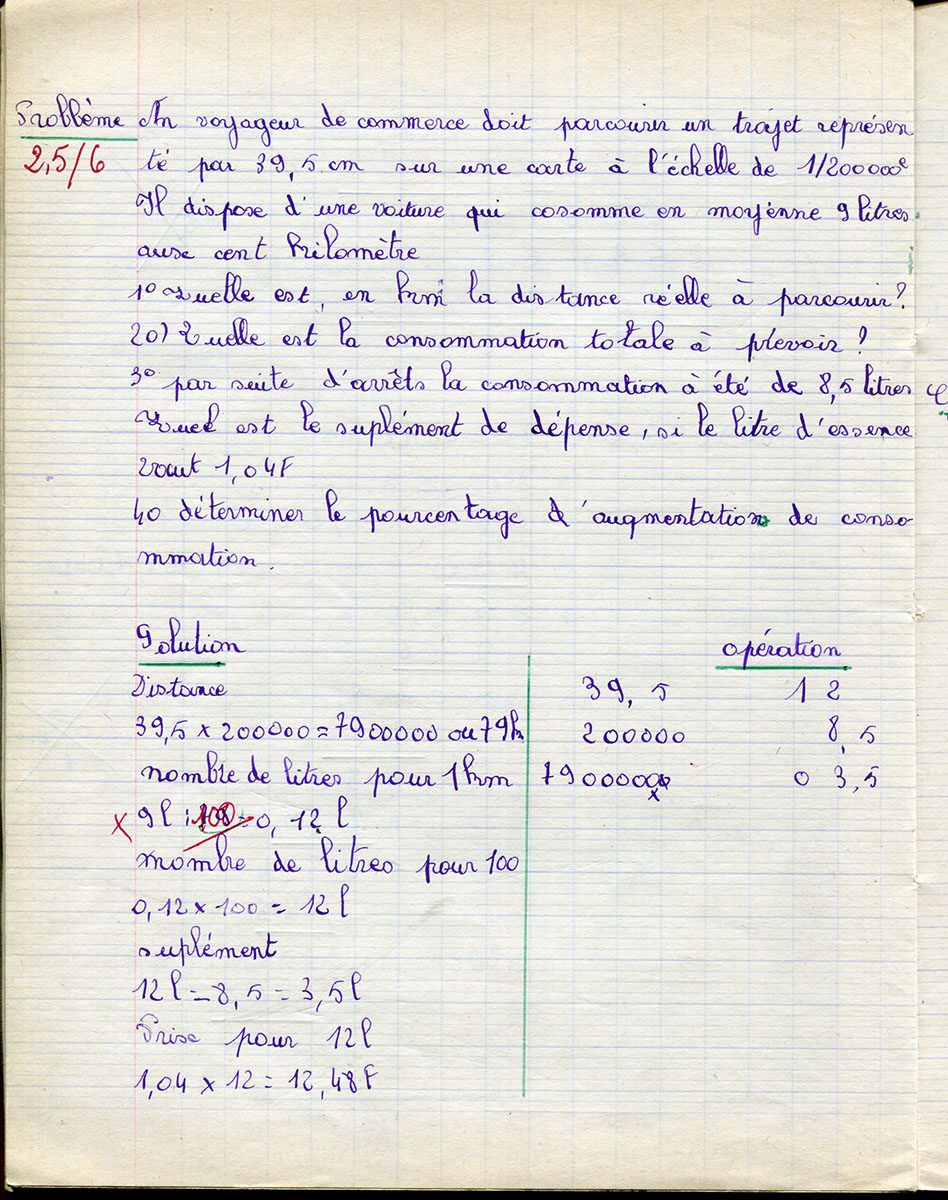 Problème Un voyageur de commerce doit parcourir un trajet représen
2,5/6 té par 39,5 cm sur une carte à l'échelle de 1/200000e
Il dispose d'une voiture qui cosomme en moyenne 9 litres
aux cent kilomètre
1° Quelle est, en km la distance réelle à parcourir?
20) Quelle est la consommation totale à prévoir?
3° par suite d'arrêts la consommation à été de 8,5 litres
Quel est le suplément de dépense, si le litre d'essence
vaut 1,04F
40 déterminer le pourcentage d'augmentation de conso-
mmation.
Solution opération
Distance 39,5 12
39,5 x 200000 = 7900000 ou 79k 200000 8,5
nombre de litres pour 1km 7900000 0 3,5
x 9l : 100 = 0,12 l
nombre de litres pour 100
0,12 x 100 = 12l
suplément
12l - 8,5 = 3,5l
Prix pour 12l
1,04 x 12 = 12,48F